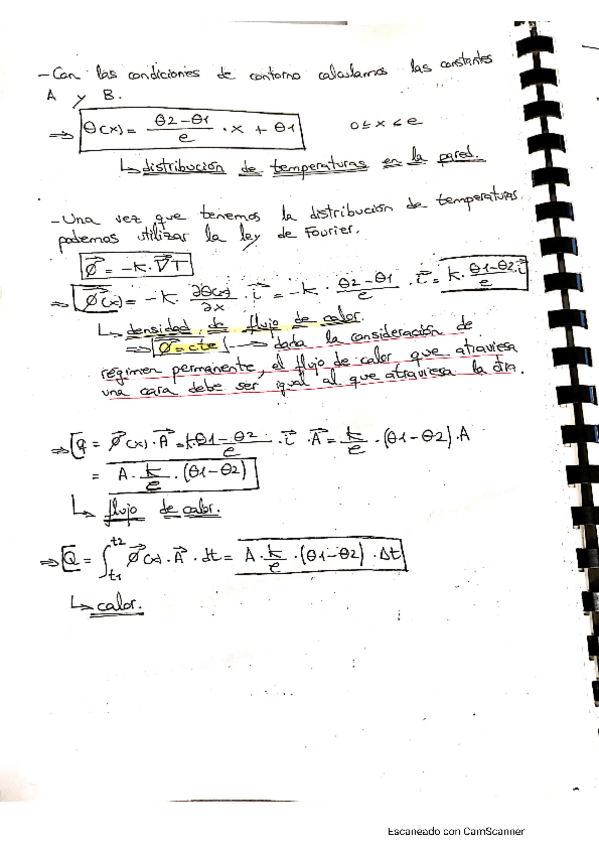 - Con las condiciones de contorno calculamos las constantes
A y B.
⇒ θ(x) = (θ2 - θ1)/e · x + θ1    0 ≤ x ≤ e
↳ distribución de temperaturas en la pared.
- Una vez que tenemos la distribución de temperaturas
podemos utilizar la ley de Fourier.
Ø⃗ = -K · ∇⃗T
⇒ Ø⃗(x) = -K · ∂θ(x)/∂x · i⃗ = -K · (θ2 - θ1)/e · i⃗ = K · (θ1 - θ2)/e · i⃗
↳ densidad de flujo de calor.
⇒ Ø = cte → dada la consideración de
régimen permanente, el flujo de calor que atraviesa
una cara debe ser igual al que atraviesa la otra.
⇒ q = Ø⃗(x) · A⃗ = K (θ1 - θ2)/e · i⃗ · A⃗ = k/e · (θ1 - θ2) · A
= A · k/e · (θ1 - θ2)
↳ flujo de calor.
⇒ Q = ∫t1^t2 Ø⃗(x) · A⃗ · dt = A · k/e · (θ1 - θ2) · Δt
↳ calor.
Escaneado con CamScanner